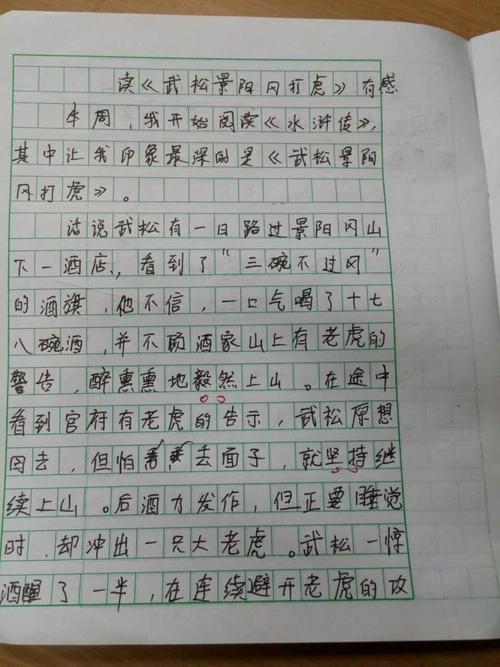 读《武松景阳冈打虎》有感
本周，我开始阅读《水浒传》，
其中让我印象最深的是《武松景阳
冈打虎》。
话说武松有一日路过景阳冈山
下一酒店，看到了“三碗不过冈”
的酒旗，他不信，一口气喝了十七
八碗酒，并不顾酒家山上有老虎的
警告，醉熏熏地毅然上山。在途中
看到官府有老虎的告示，武松原想
回去，但怕去面子，就坚持继
续上山。后酒力发作，但正要睡觉
时，却冲出一只大老虎。武松一惊
酒醒了一半，在连续避开老虎的攻